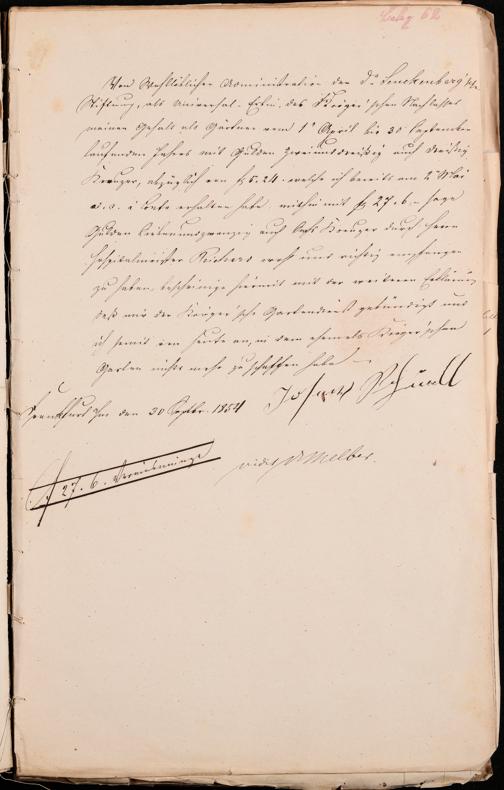 Beleg 62
Von Wohllöblicher Administration der Dr. Senckenberg'sche
Stiftung, als Universal-Erbin des Kröger'schen Nachlasses
meinen Gehalt als Gärtner vom 1t April bis 30 September
laufenden Jahres mit Gulden zweiunddreißig auch dreißig
Kreuzer, abzüglich von f 5.24. welche ich bereits am 2 Mai
a. c. à Conto erhalten habe, mithin mit f 27.6.– sage
Gulden siebenundzwanzig auch sechs Kreuzer durch Herrn
Hospitalmeister Reichard wohl und richtig empfangen
zu haben, bescheinige hiermit mit der weiteren Erklärung
daß mir der Kröger'sche Gartendienst gekündigt und
ich somit von heute an, in dem ehemals Kröger'schen
Garten nichts mehr zu schaffen habe –
Frankfurt a/m den 30 Septbr. 1854 Schüell
f 27.6.
vidit Dr Melber.